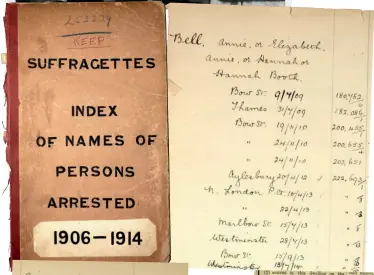 253239
KEEP
SUFFRAGETTES
INDEX
OF NAMES OF
PERSONS
ARRESTED
1906-1914
Bell, Annie, or Elizabeth.
Annie, or Hannah or
Hannah Booth.
Bow St. 9/7/09 180,782
Thames 31/7/09 182,086
Bow St. 19/11/10 200,455
" 24/11/10 200,655
" 24/11/10 200,651
Aylesbury 20/4/12 222,693
N. London P.Ct 10/4/13 "
" 22/4/13 "
Marlboro St 15/7/13 "
Westminster 28/7/13 "
Bow St. 15/9/13 "
Westminster 13/7/14 "